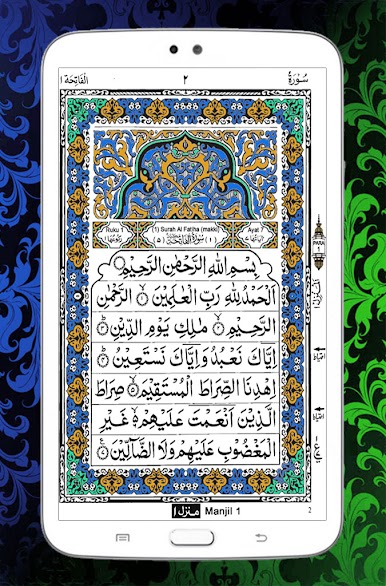 سُوْرَةُ ٢ الْفَاتِحَة ١
Ruku 1 (1) Surah Al Fatiha (makki) Ayat 7
رُكُوْعُهَا ١ (٥) سُوْرَةُ الْفَاتِحَةِ (١) اٰيَاتُهَا ٧
PARA 1
بِسْمِ اللهِ الرَّحْمٰنِ الرَّحِيْمِ
اَلْحَمْدُ لِلّٰهِ رَبِّ الْعٰلَمِيْنَ ۙ۱ الرَّحْمٰنِ
الرَّحِيْمِ ۙ۲ مٰلِكِ يَوْمِ الدِّيْنِ ؕ۳
اِيَّاكَ نَعْبُدُ وَاِيَّاكَ نَسْتَعِيْنُ ؕ۴
اِهْدِنَا الصِّرَاطَ الْمُسْتَقِيْمَ ۙ۵ صِرَاطَ
الَّذِيْنَ اَنْعَمْتَ عَلَيْهِمْ ۙ۶ غَيْرِ
الْمَغْضُوْبِ عَلَيْهِمْ وَلَا الضَّآلِّيْنَ ۷
منزل ١ Manjil 1
2